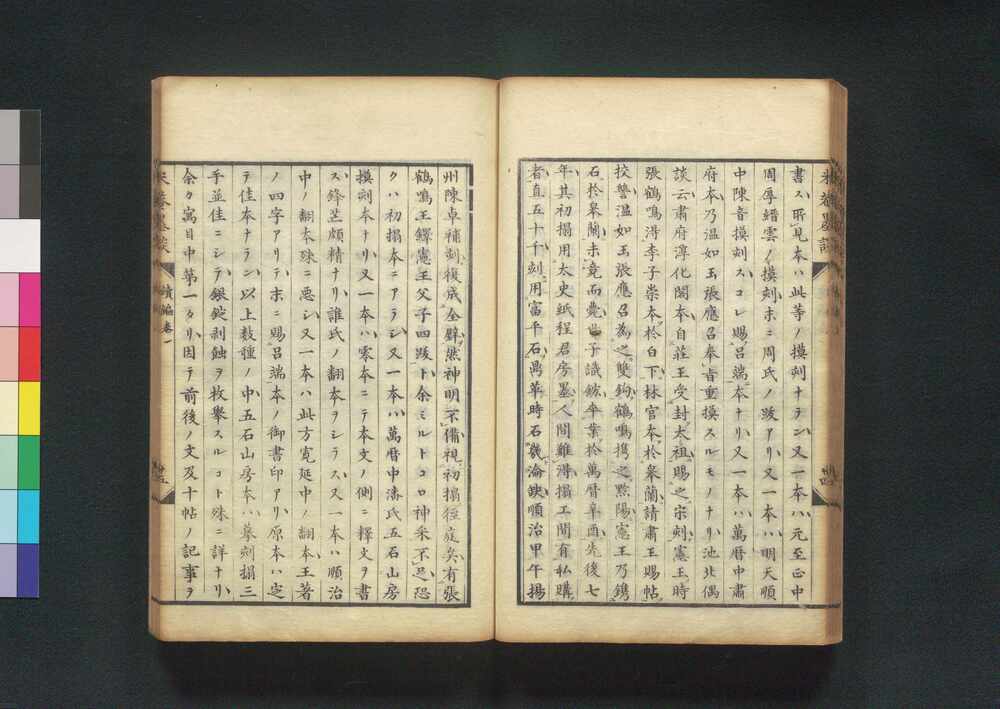 書ス所見本ハ此等ノ摸刻ナラン又一本ハ元至正中
周厚縉雲ノ摸刻末ニ周氏ノ跋アリ又一本ハ明天順
中陳音摸刻スコレ賜呂端本ナリ又一本ハ萬暦中肅
府本乃温如玉張應召奉旨重摸スルモノナリ池北偶
談云肅府淳化閣本自莊王受封太祖賜之宗刻憲王時
張鶴鳴得李子崇本於白下林官本於皋蘭請肅王賜帖
校讐温如玉張應召為之雙鉤鶴鳴携之黔陽憲王乃鐫
石於皋蘭未竟而薨世子識鋐卒業於萬暦辛酉先後七
年其初搨用太史紙程君房墨人間難得搨工間有私購
者直五十千刻用富平石鼎革時石亂淪缺順治甲午揚
州陳卓補刻復成全璧然神明不備視初搨徑庭矣有張
鶴鳴王鐸憲王父子四跋ト余ミルトコロ神采不足恐
クハ初搨本ニアラシ又一本ハ萬暦中潘氏五石山房
摸刻本ナリ又一本ハ零本ニテ本文ノ側ニ釋文ヲ書
ス鋒芒頗精ナリ誰氏ノ翻本ヲシラス又一本ハ順治
中ノ翻本殊ニ悪シ又一本ハ此方寛延中ノ翻本王著
ノ四字アリテ末ニ賜呂端本ノ御書印アリ原本ハ定
テ佳本ナラン以上数種ノ中五石山房本ハ摹刻搨三
手並佳ニシテ銀錠剥蝕ヲ枚擧スルコト殊ニ詳ナリ
余カ寓目中第一タリ因テ前後ノ文及十帖ノ記事ヲ
米菴墨談
續編卷一